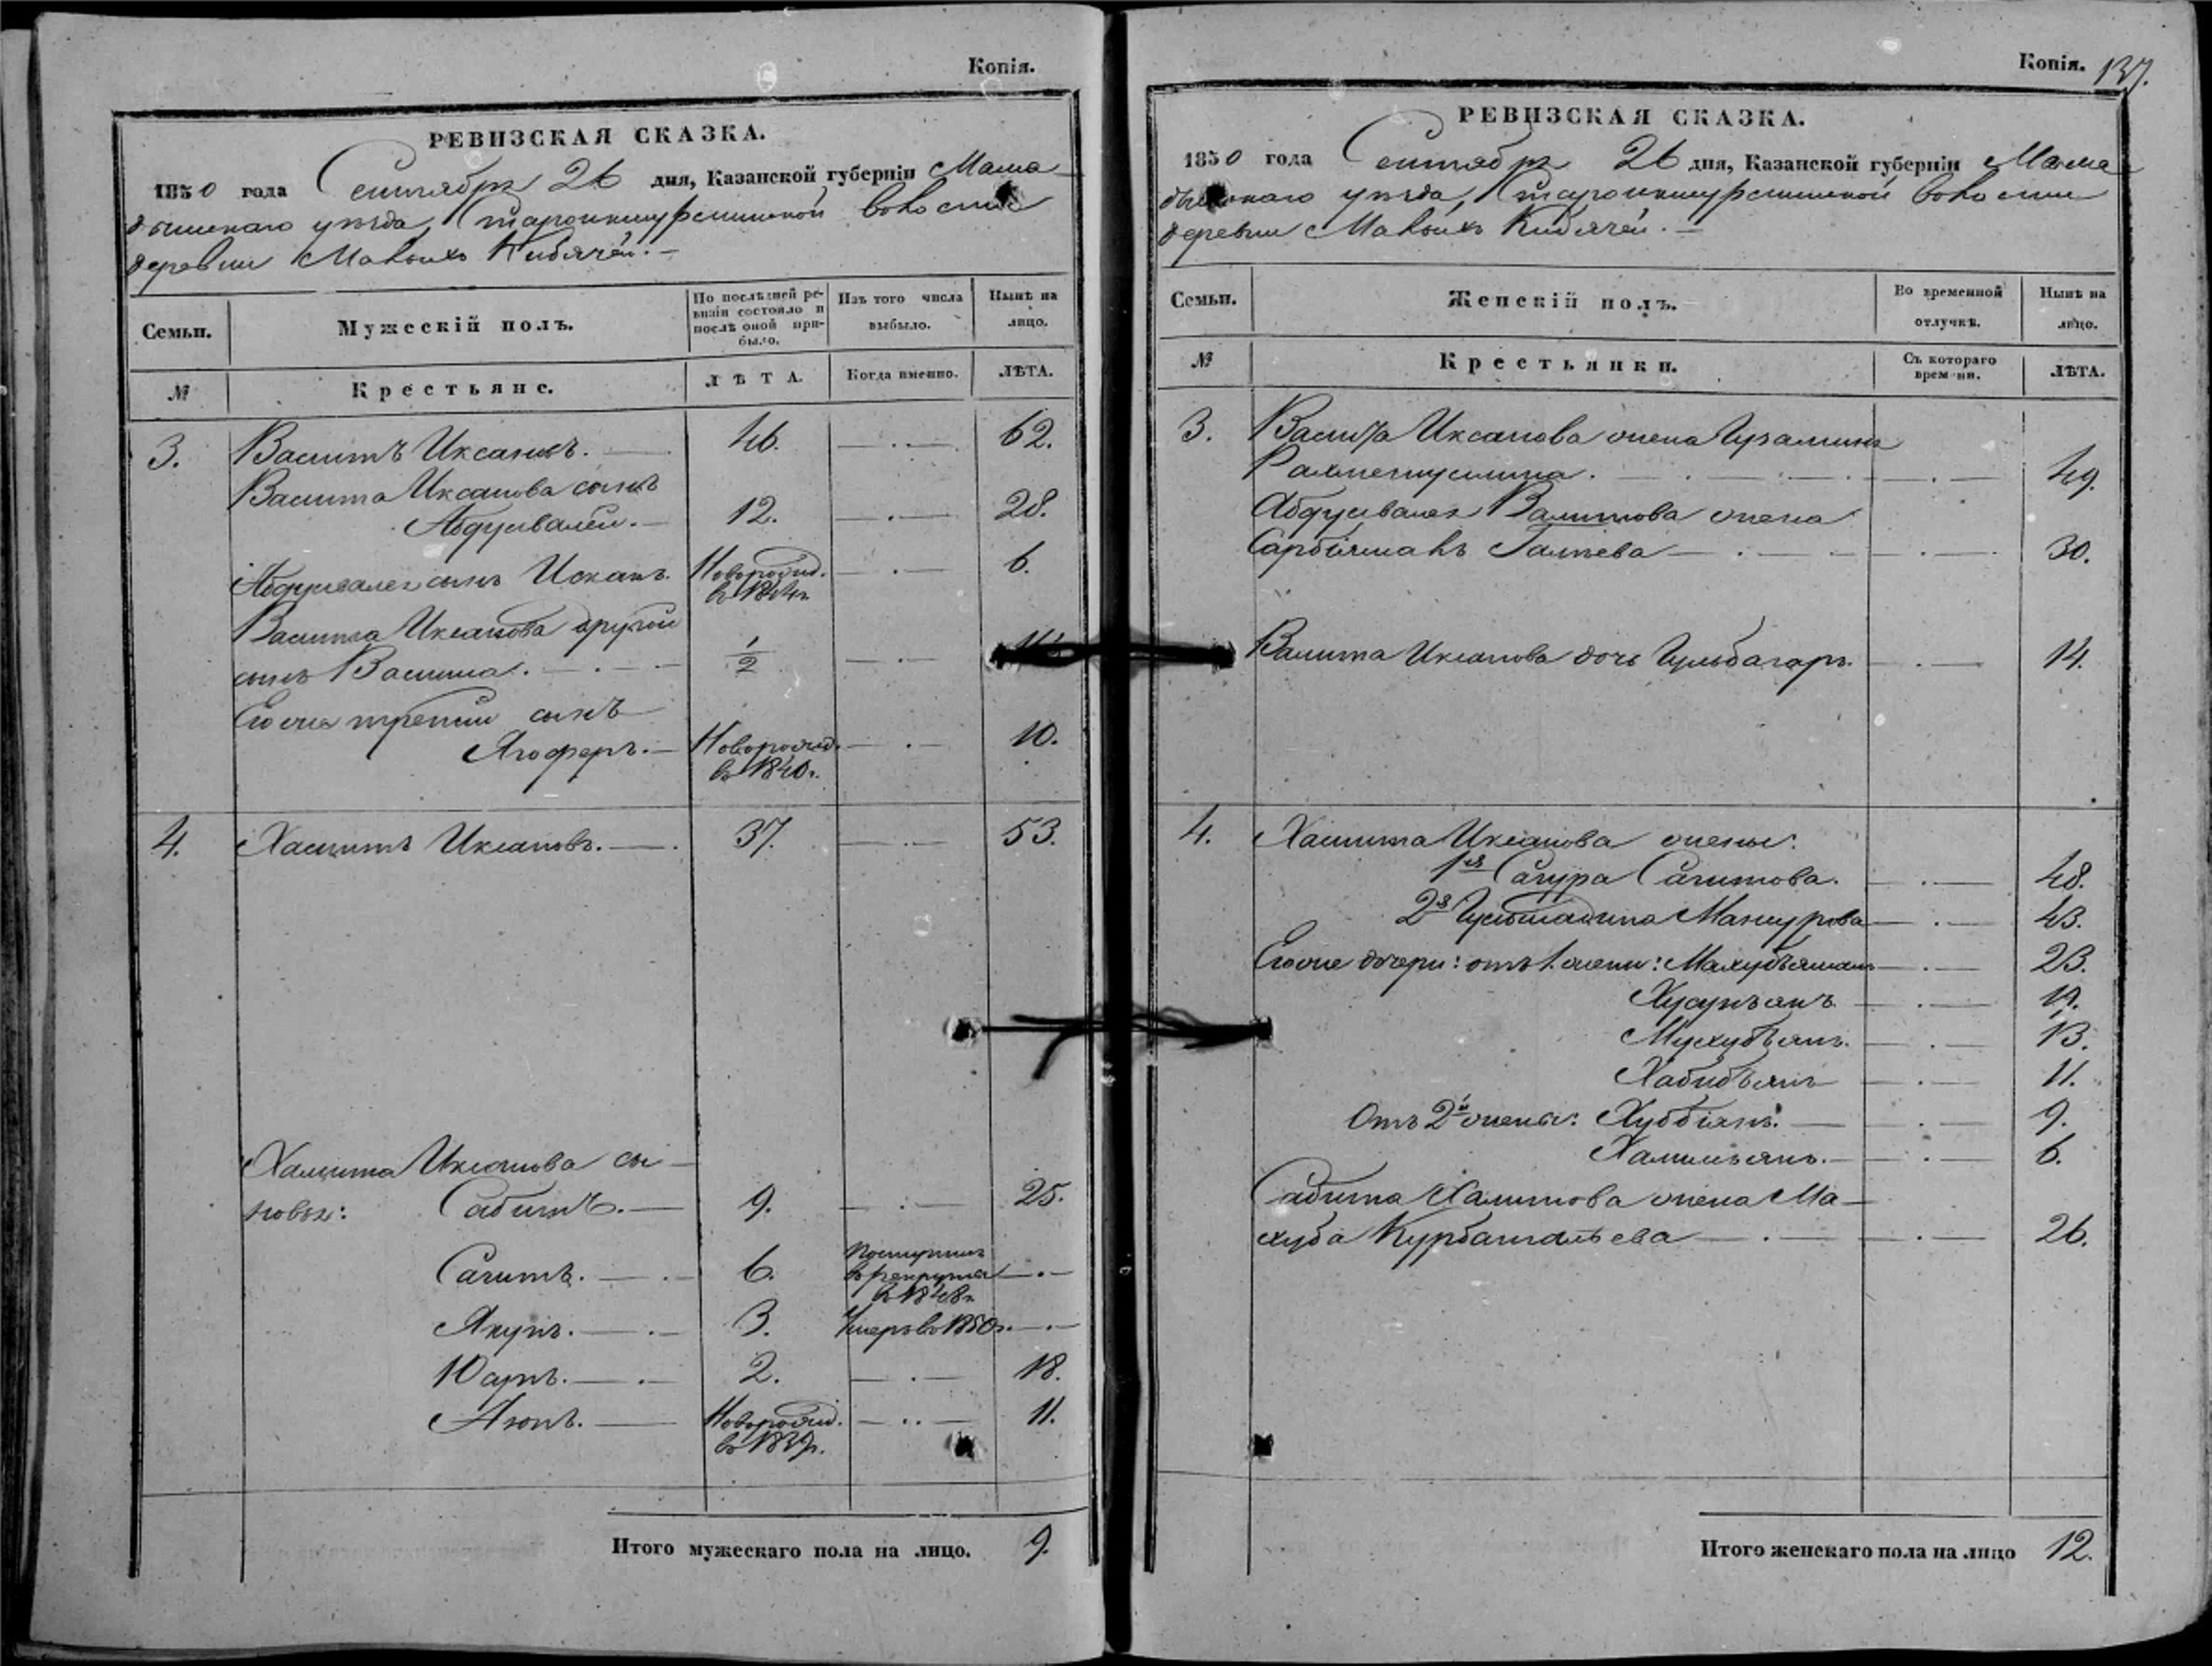 Копія.
РЕВИЗСКАЯ СКАЗКА.
1850 года Сентября 26 дня, Казанской губерніи Мама
дышскаго уѣзда, волости
деревни Малыхъ Кибячей. —
Семьи.
Мужескій полъ.
По послѣдней ре-
визіи состояло и
послѣ оной при-
было.
Изъ того числа
выбыло.
Нынѣ на
лицо.
№
Крестьяне.
ЛѢТА.
Когда именно.
ЛѢТА.
3. Иксановъ. — 46. — 62.
Иксанова сынъ
12. — 28.
сынъ Исхакъ. Новорожд. — 6.
въ 1844г.
Иксанова другой
сынъ 1/2 —
Его же третій сынъ
Ягоферъ. — Новорожд. — 10.
въ 1840г.
4. Хамитъ Иксановъ. — 37. — 53.
Хамита Иксанова сы-
новья: Сабитъ. — 9. — 25.
Сагитъ. — 6. Поступилъ
въ рекруты —
въ 1848г.
Якупъ. — 3. Умеръ въ 1850г. —
Юсупъ. — 2. — 18.
Аюпъ. — Новорожд. — 11.
въ 1839г.
Итого мужескаго пола на лицо. 9.
Копія. 137.
РЕВИЗСКАЯ СКАЗКА.
1850 года Сентября 26 дня, Казанской губерніи Мама
дышскаго уѣзда, волости
деревни Малыхъ Кибячей. —
Семьи.
Женскій полъ.
Во временной
отлучкѣ.
Нынѣ на
лицо.
№
Крестьянки.
Съ котораго
времени.
ЛѢТА.
3. Иксанова жена
— 49.
Валитова жена
Галіева — 30.
Валита Иксанова дочь Гульбагаръ. — 14.
4. Хамита Иксанова жены:
1я Сагитова. — 48.
2я Мансурова — 43.
Его же дочери: отъ 1. жены: — 23.
— 17.
— 13.
Хабибъянъ — 11.
Отъ 2й жены: Хуббіянъ. — 9.
— 6.
Сабита Хамитова жена Ма-
хуба Курбангалѣева — 26.
Итого женскаго пола на лицо 12.